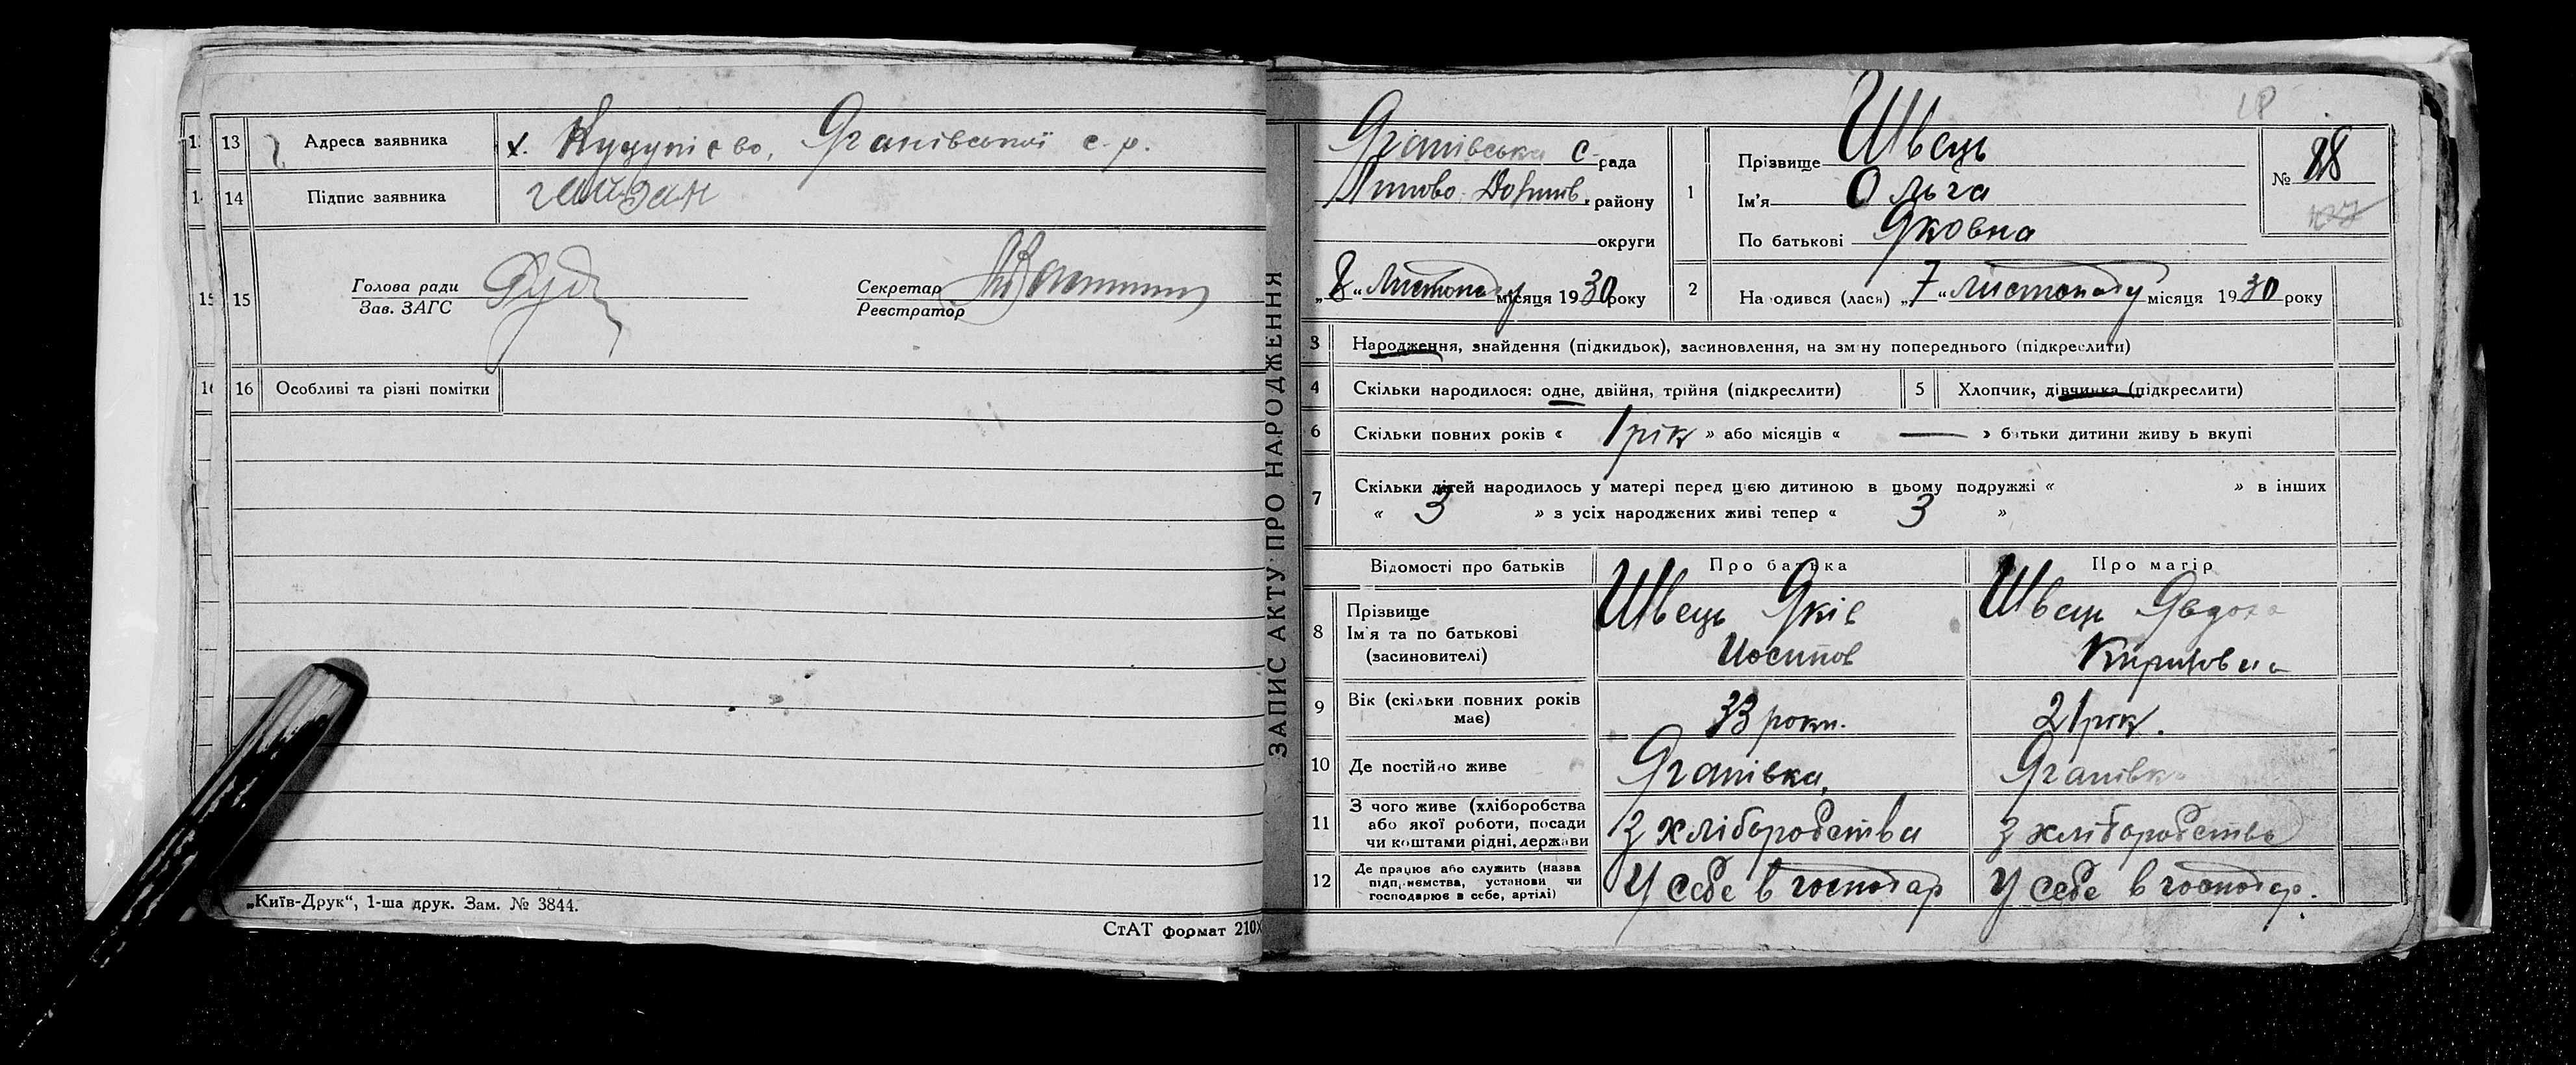 13 Адреса заявника х. , Яганівської с. р.
14 Підпис заявника гайдан
15 Голова ради Секретар
Зав. ЗАГС Реєстратор
16 Особливі та різні помітки
„Київ-Друк“, 1-ша друк. Зам. № 3844.
СтАТ формат 210Х
ЗАПИС АКТУ ПРО НАРОДЖЕННЯ
Яганівська с. рада
району
округи
„8“ Листопаду місяця 1930 року
1 Прізвище Швець
Ім'я Ольга
По батькові Яковна
№ 88
2 Народився (лася) „7“ Листопаду місяця 1930 року
3 Народження, знайдення (підкидьок), засиновлення, на зміну попереднього (підкреслити)
4 Скільки народилося: одне, двійня, трійня (підкреслити) 5 Хлопчик, дівчинка (підкреслити)
6 Скільки повних років « 1 рік » або місяців « — » батьки дитини живуть вкупі
7 Скільки дітей народилось у матері перед цією дитиною в цьому подружжі « » в інших
« 3 » з усіх народжених живі тепер « 3 »
Відомості про батьків Про батька Про матір
8 Прізвище Швець Яків Швець Явдоха
Ім'я та по батькові
(засиновителі) Иосипов Кириловна
9 Вік (скільки повних років має) 33 роки. 21 рік.
10 Де постійно живе Яганівка, Яганівка
11 З чого живе (хліборобства
або якої роботи, посади З хліборобства З хліборобства
чи коштами рідні, держави
12 Де працює або служить (назва
підприємства, установи чи У себе в господар У себе в господар.
господарює в себе, артілі)